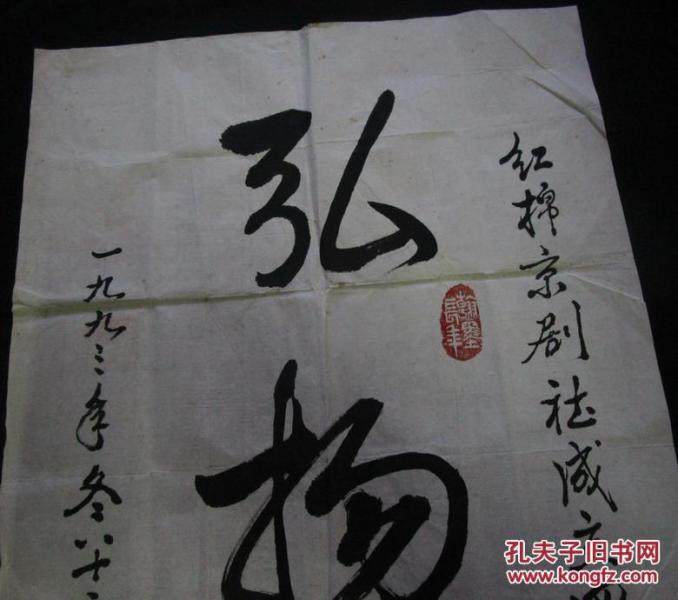 红棉京剧社成立四
翰墨
長年
弘
揚
一九九三年冬八十
孔夫子旧书网
www.kongfz.com